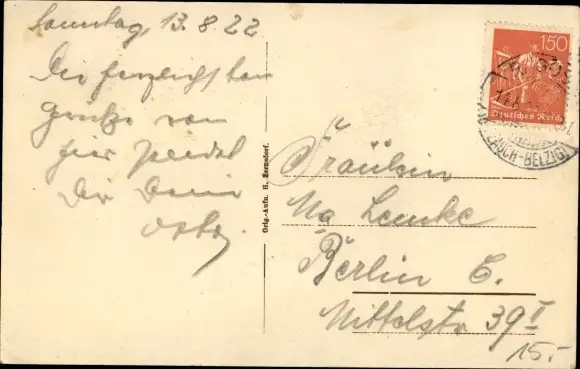 Sonntag, 13.8.22
Die herzlichsten
Grüße von
hier sendet
Dir Deine
Orig.-Aufn. H. Zernsdorf.
150
Deutsches Reich
(ZAUCH-BELZIG)
Fräulein
Lemke
Berlin C.
Mittelstr 39 I
15.-